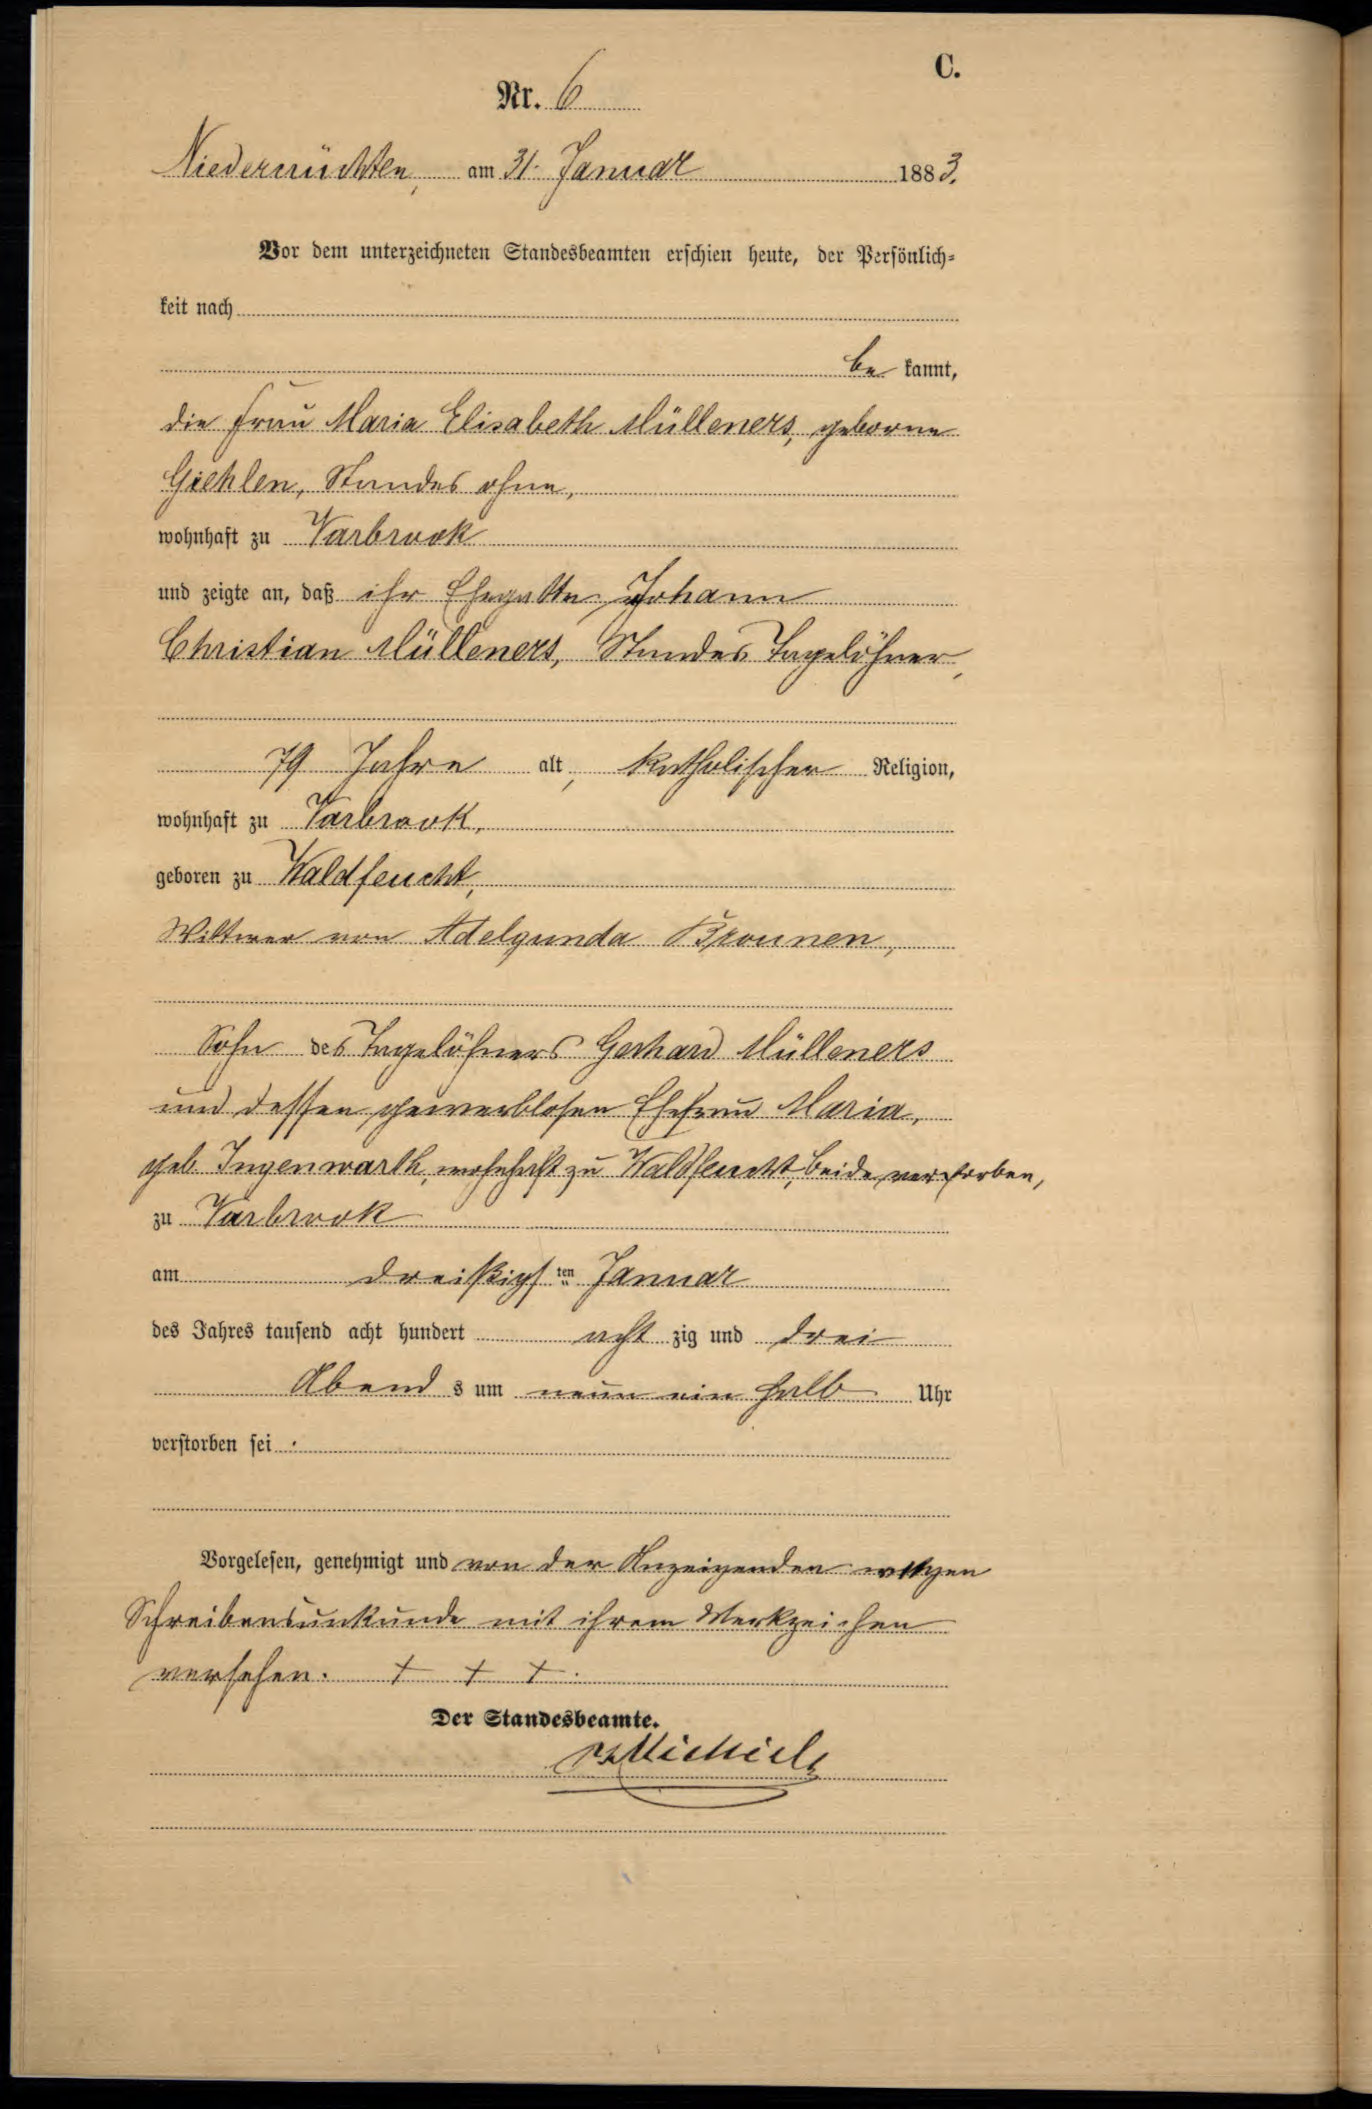 C.
Nr. 6
Niederkrüchten, am 31. Januar 1883.
Vor dem unterzeichneten Standesbeamten erschien heute, der Persönlich-
keit nach
be kannt,
die Frau Maria Elisabeth Mülleners, geborne
Giehlen, Standes ohne,
wohnhaft zu Varbrook
und zeigte an, daß ihr Ehegatte, Johann
Christian Mülleners, Standes Tagelöhner,
79 Jahre alt, katholischer Religion,
wohnhaft zu Varbrook,
geboren zu Waldfeucht,
Wittwer von Adelgunda Brounen,
Sohn des Tagelöhners Gerhard Mülleners
und dessen gewerblosen Ehefrau Maria,
geb. Ingenwarth, wohnhaft zu Waldfeucht, beide verstorben,
zu Varbrook
am dreißigsten Januar
des Jahres tausend acht hundert acht zig und drei
Abend s um neun ein halb Uhr
verstorben sei.
Vorgelesen, genehmigt und von der Anzeigenden wegen
Schreibensunkunde mit ihrem Merkzeichen
versehen. + + +.
Der Standesbeamte.